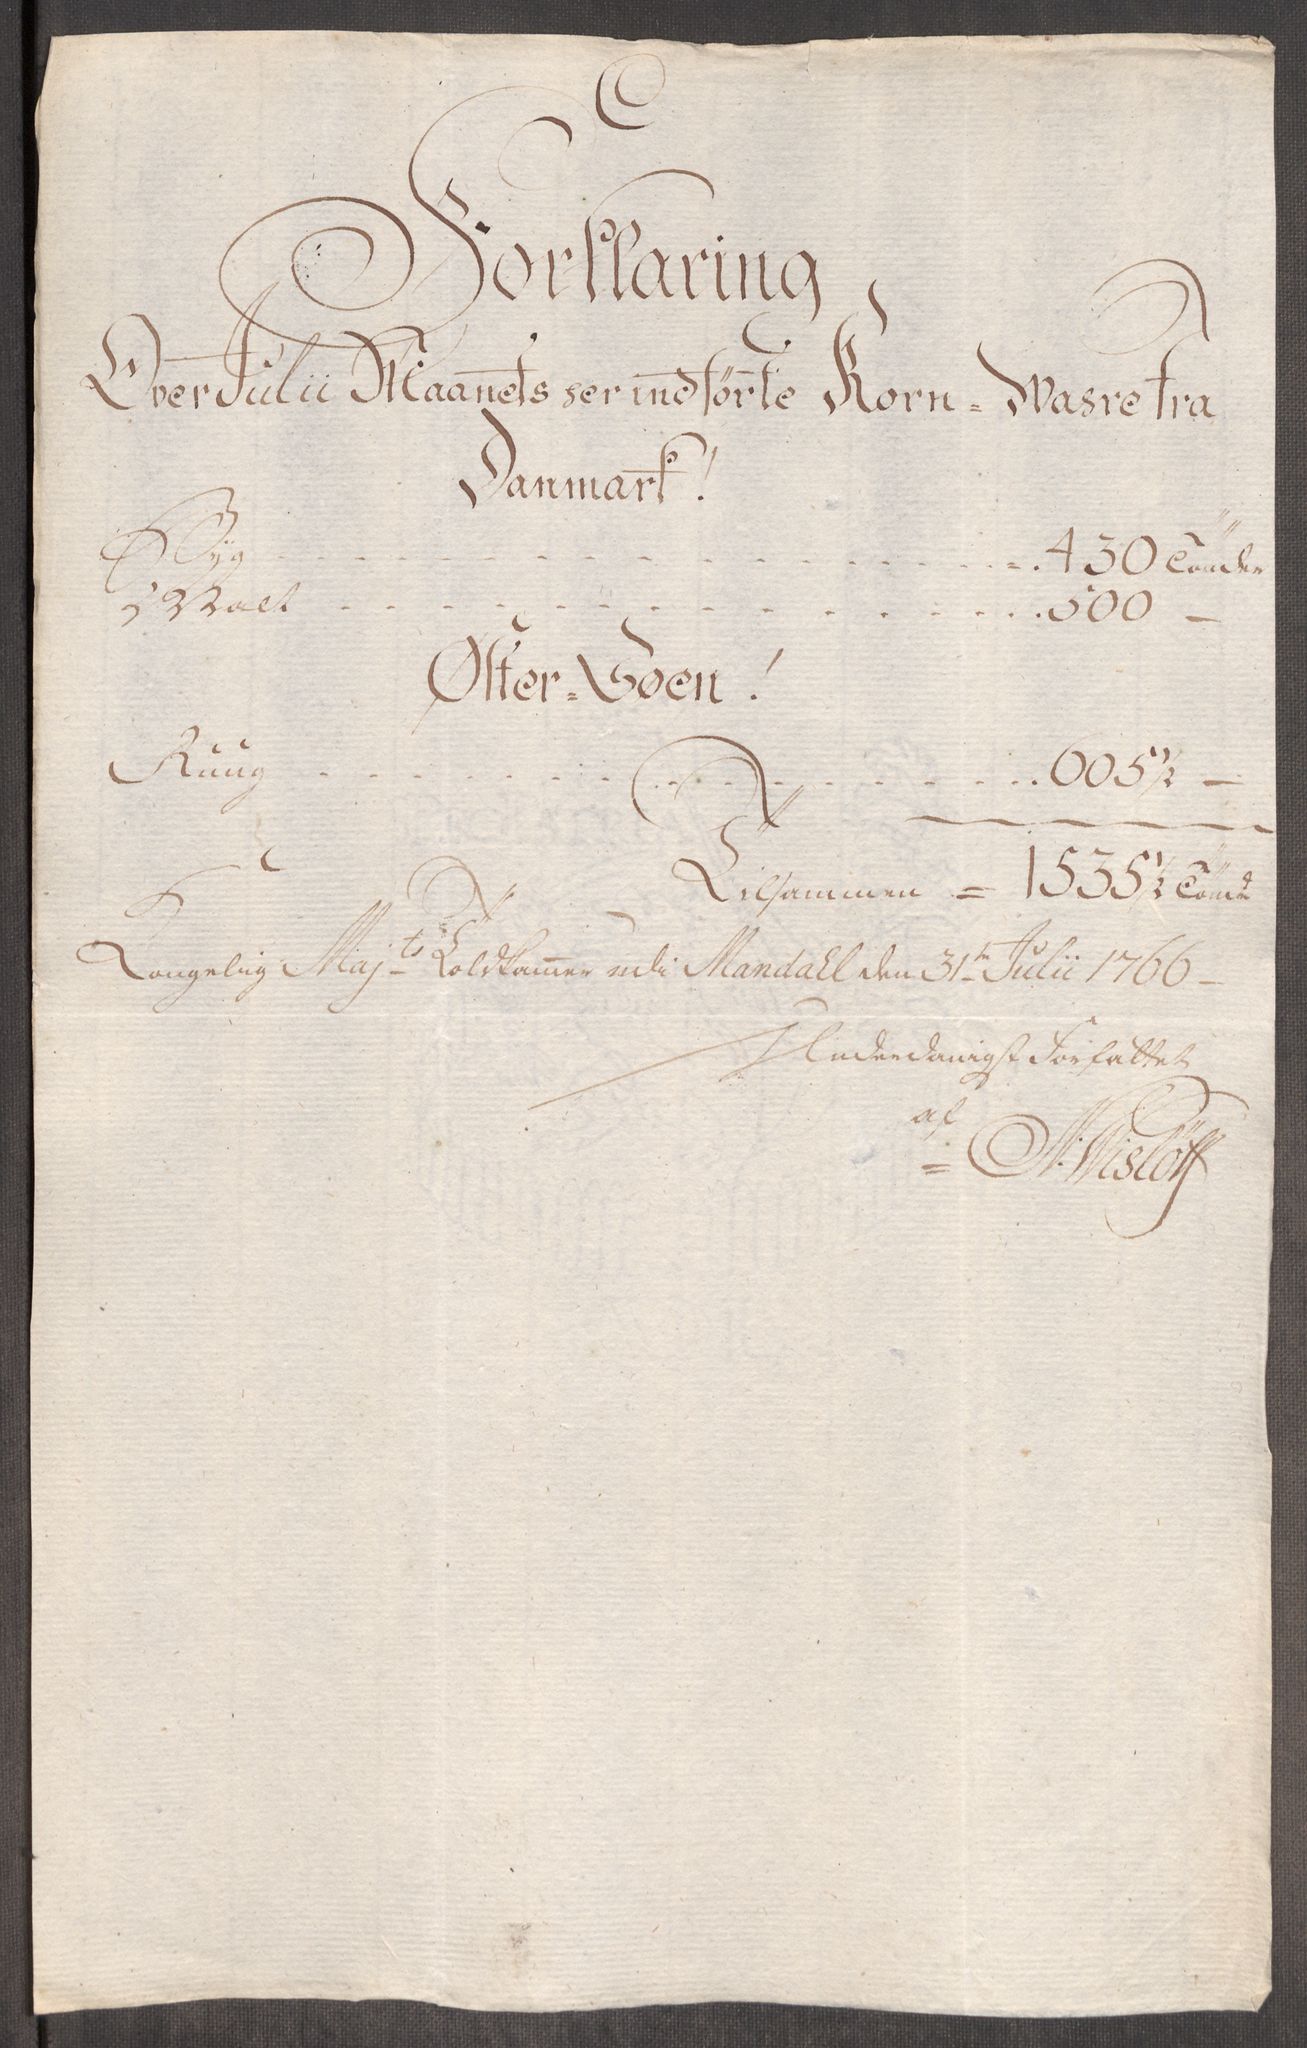 Forklaring
Over Julii Maanets her indførte Korn-Wahre fra
Danmark!
Byg - - - - 430 Tönder
Malt - - - - 500 —
Øster-Søen!
Ruug - - - - 605 1/2 —
Tilsammen = 1535 1/2 Tönd
Kongelig Majts Toldkammer udi Mandahl den 31te Julii 1766 —
Underdanigst Forfattet
af
= N: Wislöff